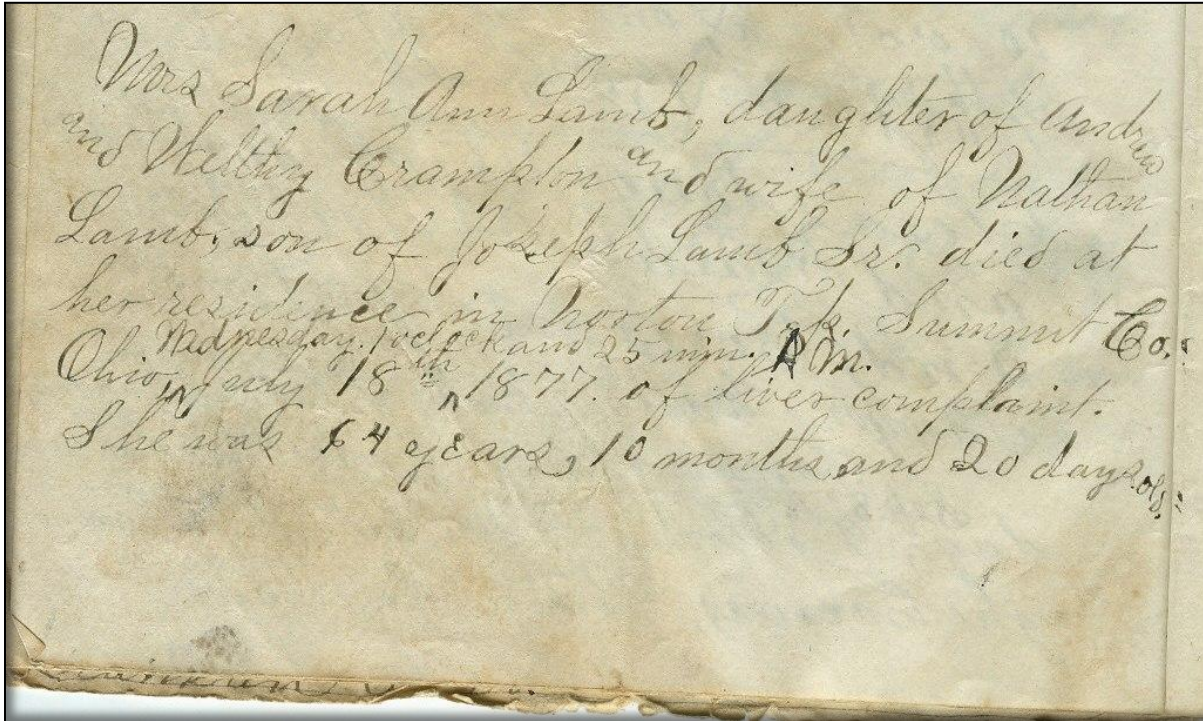 Mrs Sarah Ann Lamb, daughter of Andrew
and Welthy Crampton and wife of Nathan
Lamb, son of Joseph Lamb Sr. died at
her residence in Norton Tp. Summit Co.
Wednesday. 1 oclock and 25 min. P.M.
Ohio, July 18th, 1877. of liver complaint.
She was 64 years, 10 months and 20 days old.